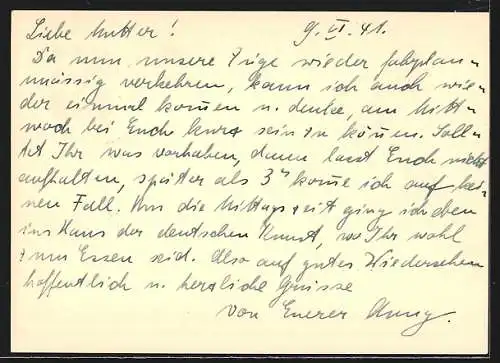 Liebe Mutter! 9. VI. 41.
Da nun unsere Züge wieder fahrplan-
mässig verkehren, kann ich auch wie-
der einmal komen u. denke, am Mitt-
woch bei Euch kurz sein zu könen. Soll-
tet Ihr was vorhaben, dann lasst Euch nicht
aufhalten, später als 3 h kome ich auf kei-
nen Fall. Um die Mittagszeit ging ich eben
ins Haus der deutschen Kunst, wo Ihr wohl
zum Essen seid. Also auf gutes Wiedersehen
hoffentlich u. herzliche Grüsse
von Euerer